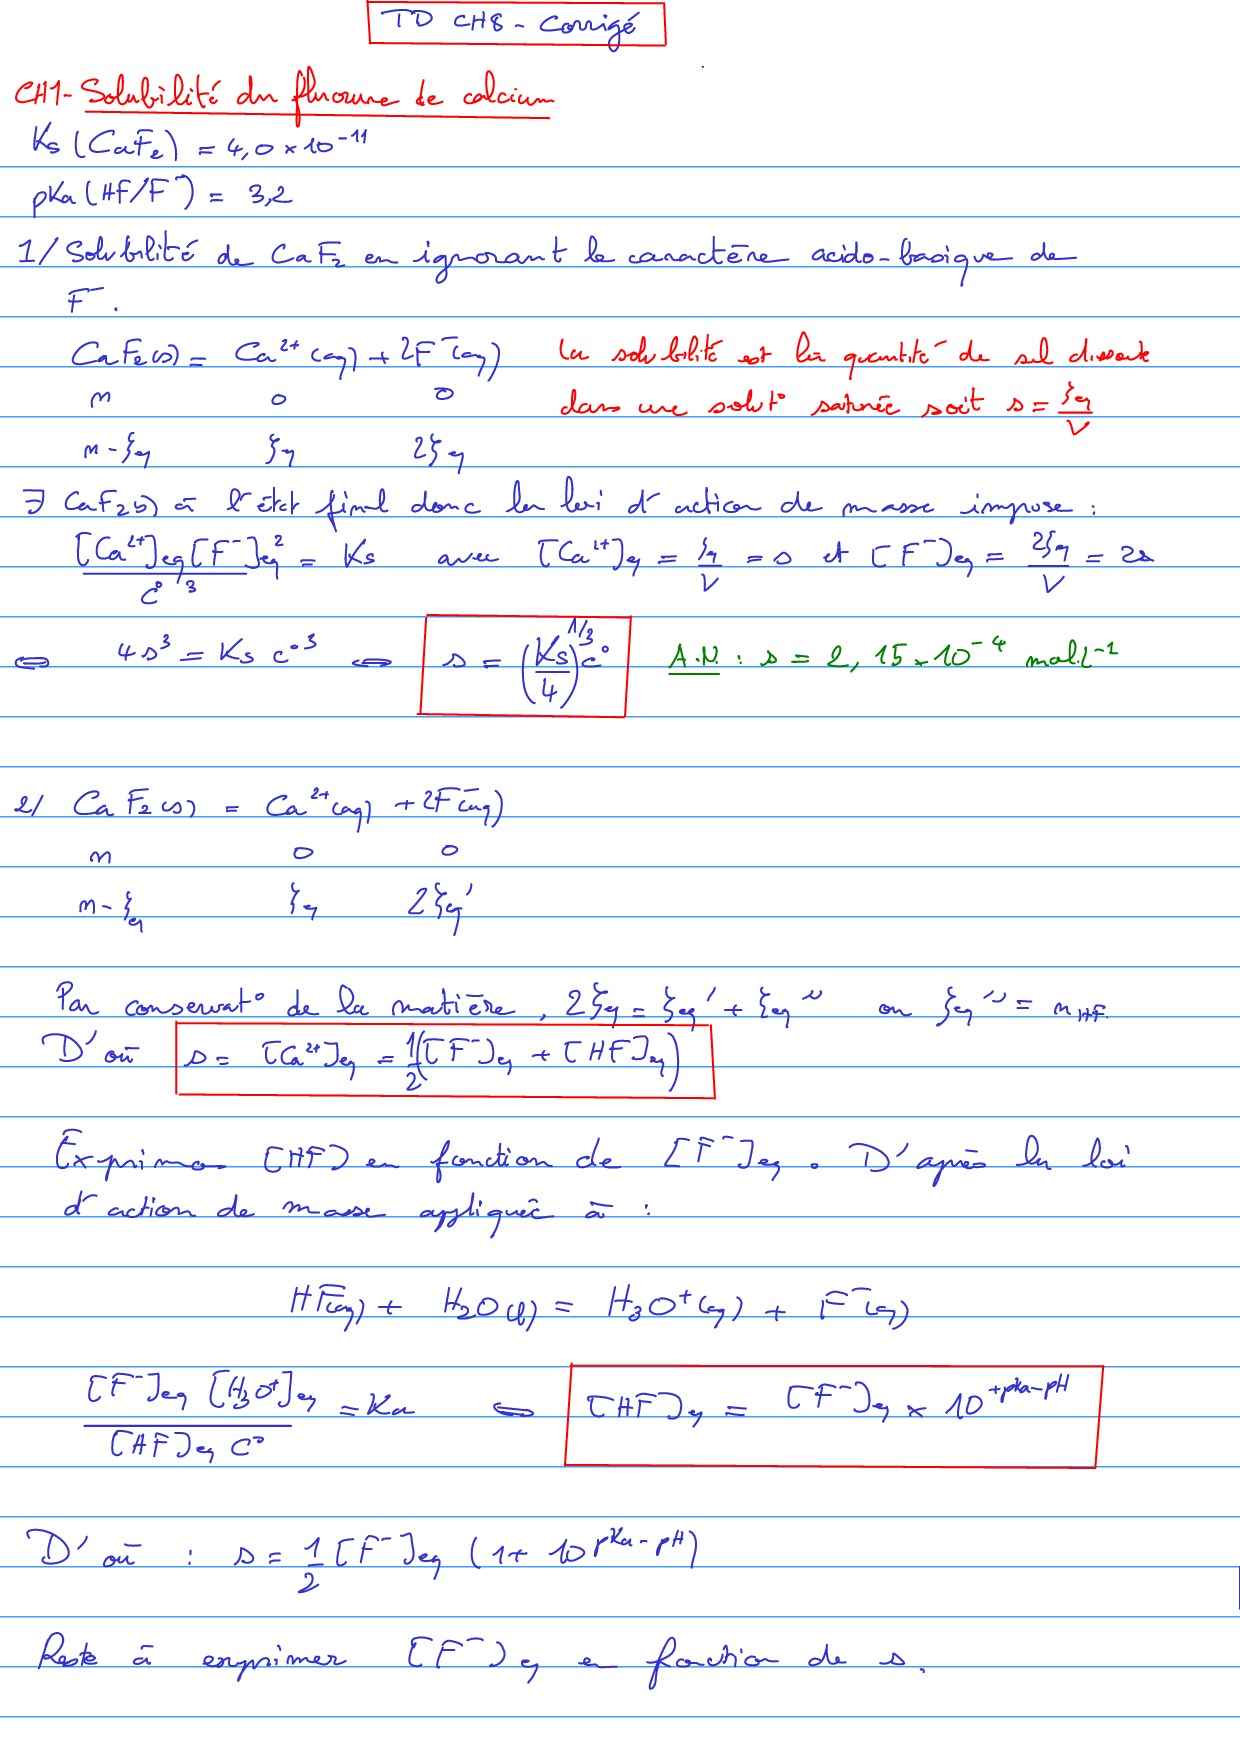 TD CH8 - Corrigé
CH1- Solubilité du fluorure de calcium
Ks (CaF2) = 4,0 × 10⁻¹¹
pKa (HF/F⁻) = 3,2
1/ Solubilité de CaF2 en ignorant le caractère acido-basique de
F⁻.
CaF2(s) = Ca²⁺(aq) + 2F⁻(aq) La solubilité est la quantité de sel dissoute
n 0 0 dans une solut° saturée soit s = ξeq/V
n-ξeq ξeq 2ξeq
∃ CaF2(s) à l'état final donc la loi d'action de masse impose :
[Ca²⁺]eq[F⁻]eq²/c°³ = Ks avec [Ca²⁺]eq = ξeq/V = s et [F⁻]eq = 2ξeq/V = 2s
⇔ 4s³ = Ks c°³ ⇔ s = (Ks/4)^1/3 c° A.N. : s = 2,15 × 10⁻⁴ mol.L⁻¹
2/ CaF2(s) = Ca²⁺(aq) + 2F⁻(aq)
n 0 0
n-ξeq ξeq 2ξeq'
Par conservat° de la matière, 2ξeq = ξeq' + ξeq'' or ξeq'' = nHF.
D'où s = [Ca²⁺]eq = 1/2([F⁻]eq + [HF]eq)
Exprimons [HF] en fonction de [F⁻]eq. D'après la loi
d'action de masse appliquée à :
HF(aq) + H2O(l) = H3O⁺(aq) + F⁻(aq)
[F⁻]eq [H3O⁺]eq/[HF]eq c° = Ka ⇔ [HF]eq = [F⁻]eq × 10^+pKa-pH
D'où : s = 1/2 [F⁻]eq (1 + 10^pKa-pH)
Reste à exprimer [F⁻]eq en fonction de s.